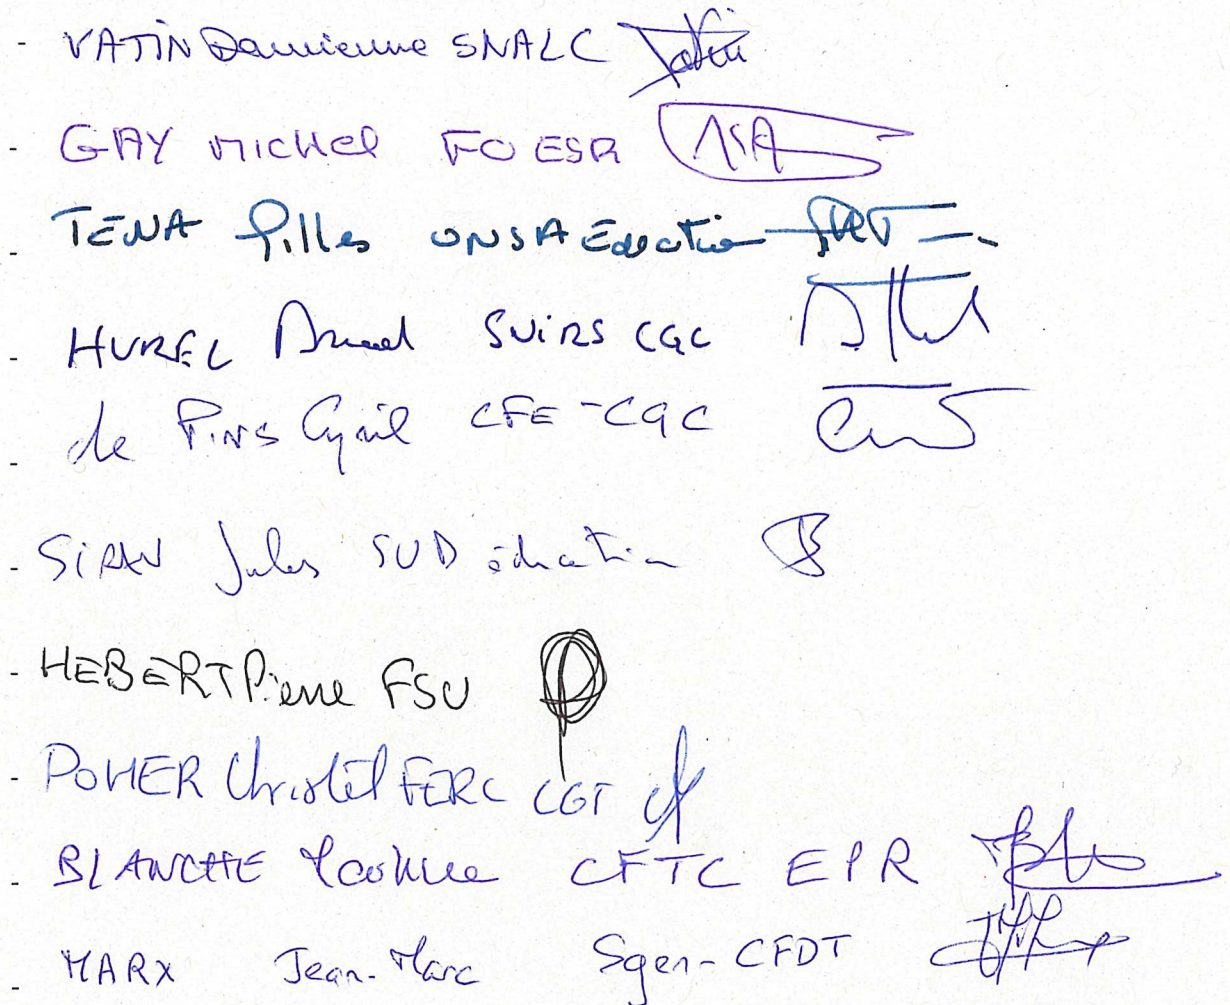 - VATIN Damienne SNALC Vatin
- GAY MICHEL FO ESR
- TENA Gilles UNSA Education
- HUREL Arnaud SNIRS CGC
- de PINS Cyril CFE-CGC
- SIRAN Jules SUD éducation
- HEBERT Pierre FSU
- POMER Christel FERC CGT
- BLANCHE CFTC EPR
- MARX Jean-Marc Sgen-CFDT